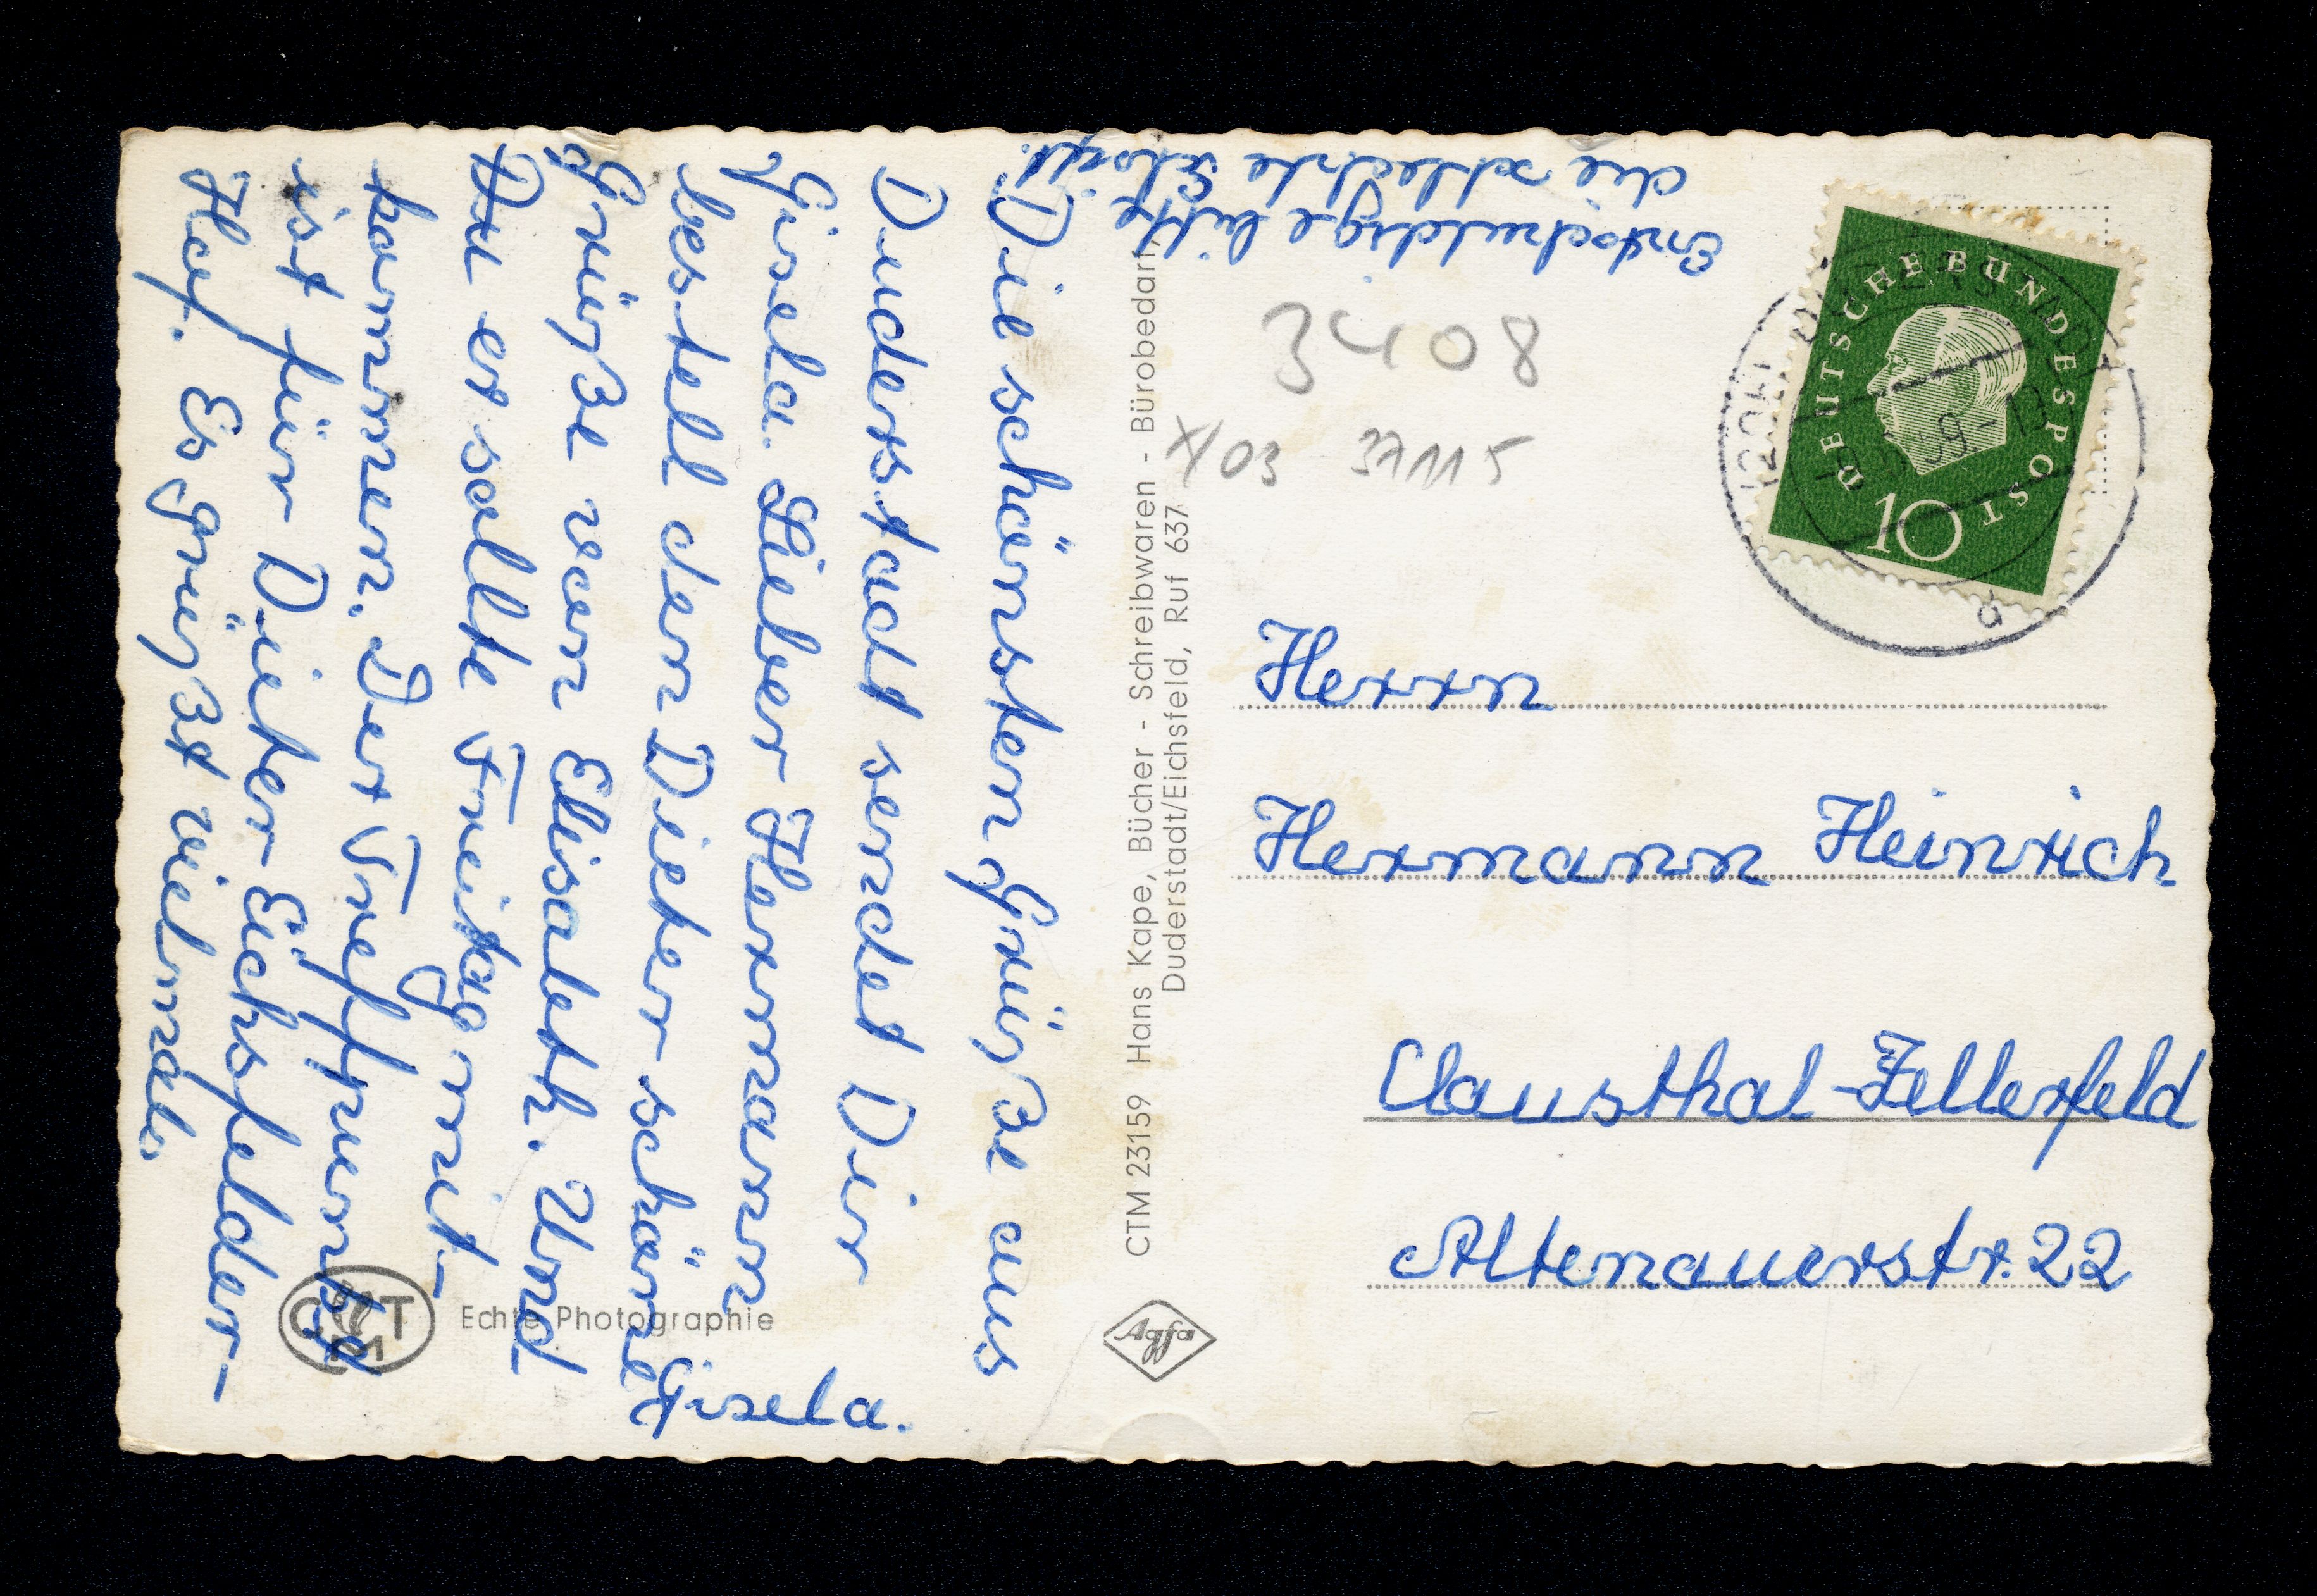 Die schönsten Grüße aus
Duderstadt sendet Dir
Gisela. Lieber Hermann
bestell den Dieter schöne
Grüße von Elisabeth. Und
er sollte Freitag mit-
kommen. Der Treffpunkt
ist für Dieter Eichsfelder-
Hof. Es grüßt vielmals
Gisela.
Entschuldige bitte
die schlechte
3408
X/03 37115
DEUTSCHE BUNDESPOST
10
Herrn
Hermann Heinrich
Clausthal-Zellerfeld
Altenauerstr. 22
CTM 23159 Hans Kape, Bücher - Schreibwaren - Bürobedarf,
Duderstadt/Eichsfeld, Ruf 637
Echte Photographie
Agfa